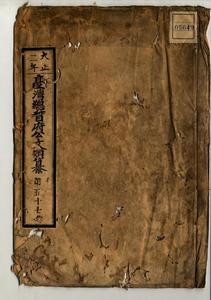 大正二年
臺灣總督府公文類纂
第五十七卷
05649